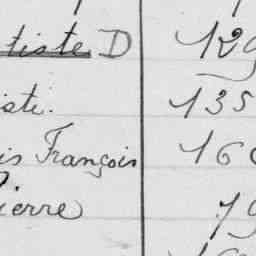 tiste D 129
iste. 135
is François 166
Pierre 79